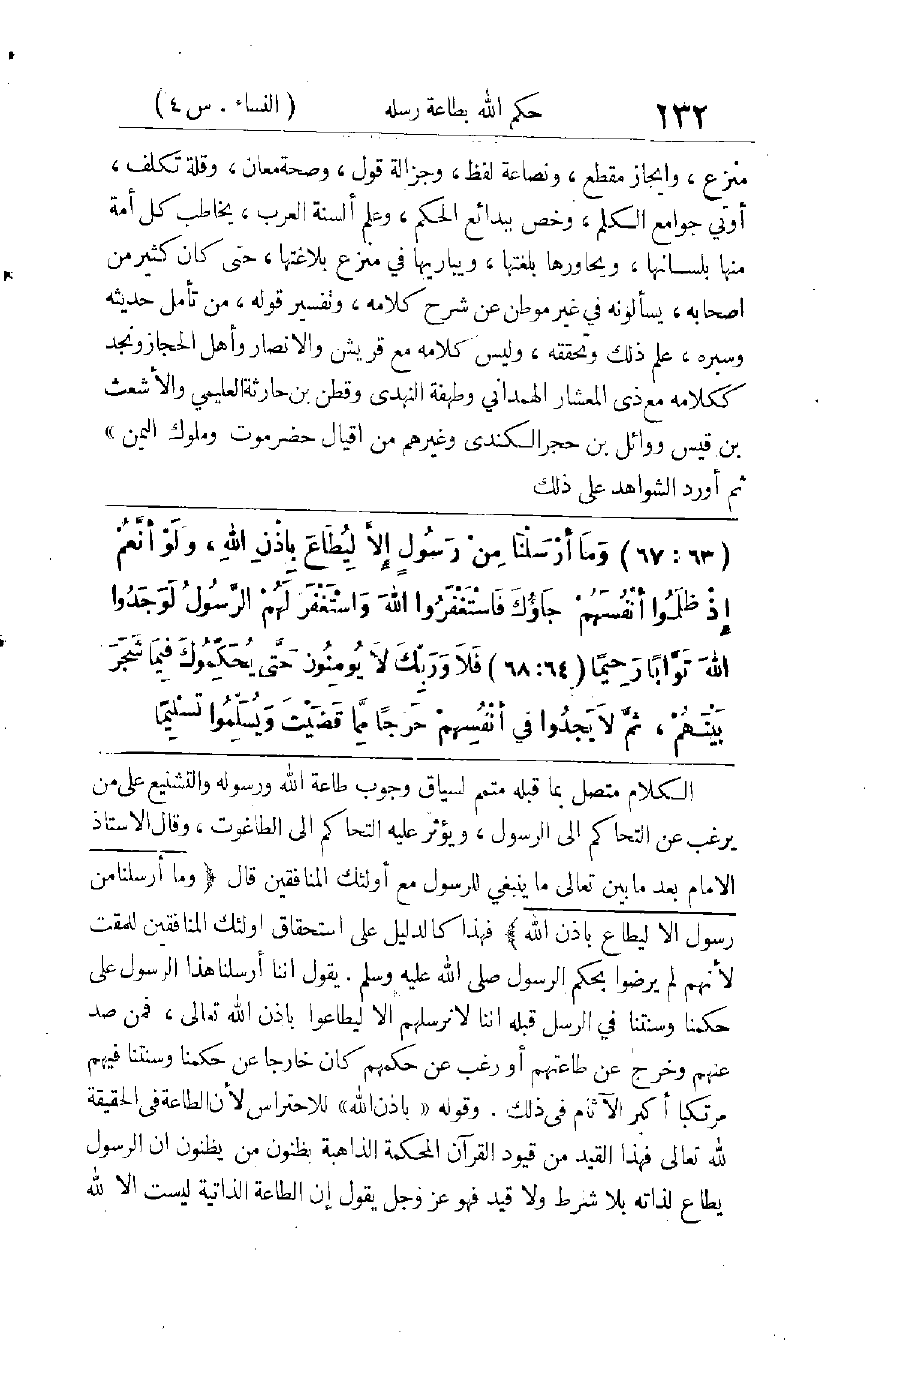 ٦٣٢ حكم الله بطاعة رسله ( النساء . س ٤ )
منزع ، وايجاز مقطع ، ونصاعة لفظ ، وجزالة قول ، وصحة معان ، وقلة تكلف ،
أوتي جوامع الكلم ، وخص ببدائع الحكم ، وعلم ألسنة العرب ، يخاطب كل أمة
منها بلسانها ، ويحاورها بلغتها ، ويباريها في منزع بلاغتها ، حتى كان كثير من
اصحابه ، يسألونه في غير موطن عن شرح كلامه ، وتفسير قوله ، من تأمل حديثه
وسيره ، علم ذلك وتحققه ، وليس كلامه مع قريش والانصار وأهل الحجاز ونجد
ككلامه مع ذى المعشار الهمداني وطهفة النهدى وقطن بن حارثة العليمي والأشعث
بن قيس ووائل بن حجر الكندى وغيرهم من اقيال حضرموت وملوك اليمن »
ثم أورد الشواهد على ذلك
( ٦٣ : ٦٧ ) وَمَا أَرْسَلْنَا مِنْ رَسُولٍ إِلاَّ لِيُطَاعَ بِإِذْنِ اللهِ ، وَلَوْ أَنَّهُمْ
إِذْ ظَلَمُوا أَنْفُسَهُمْ جَاؤُكَ فَاسْتَغْفَرُوا اللهَ وَاسْتَغْفَرَ لَهُمْ الرَّسُولُ لَوَجَدُوا
اللهَ تَوَّابًا رَحِيمًا ( ٦٤ : ٦٨ ) فَلاَ وَرَبِّكَ لاَ يُومِنُونَ حَتَّى يُحَكِّمُوكَ فِيمَا شَجَرَ
بَيْنَهُمْ ، ثُمَّ لاَ يَجِدُوا فِي أَنْفُسِهِمْ حَرَجًا مِمَّا قَضَيْتَ وَيُسَلِّمُوا تَسْلِيمًا
الكلام متصل بما قبله متمم لسياق وجوب طاعة الله ورسوله والتشنيع على من
يرغب عن التحاكم الى الرسول ، ويؤثر عليه التحاكم الى الطاغوت ، وقال الاستاذ
الامام بعد ما بين تعالى ما ينبغي للرسول مع أولئك المنافقين قال ﴿ وما أرسلنا من
رسول الا ليطاع باذن الله ﴾ فهذا كالدليل على استحقاق اولئك المنافقين للمقت
لأنهم لم يرضوا بحكم الرسول صلى الله عليه وسلم . يقول اننا أرسلنا هذا الرسول على
حكمنا وسنتنا في الرسل قبله اننا لا نرسلهم الا ليطاعوا باذن الله تعالى ، فمن صد
عنهم وخرج عن طاعتهم أو رغب عن حكمهم كان خارجا عن حكمنا وسنتنا فيهم
مرتكبا أكبر الآثام في ذلك . وقوله « باذن الله » للاحتراس لأن الطاعة فى الحقيقة
لله تعالى فهذا القيد من قيود القرآن المحكمة الذاهبة بظنون من يظنون ان الرسول
يطاع لذاته بلا شرط ولا قيد فهو عز وجل يقول إن الطاعة الذاتية ليست الا لله